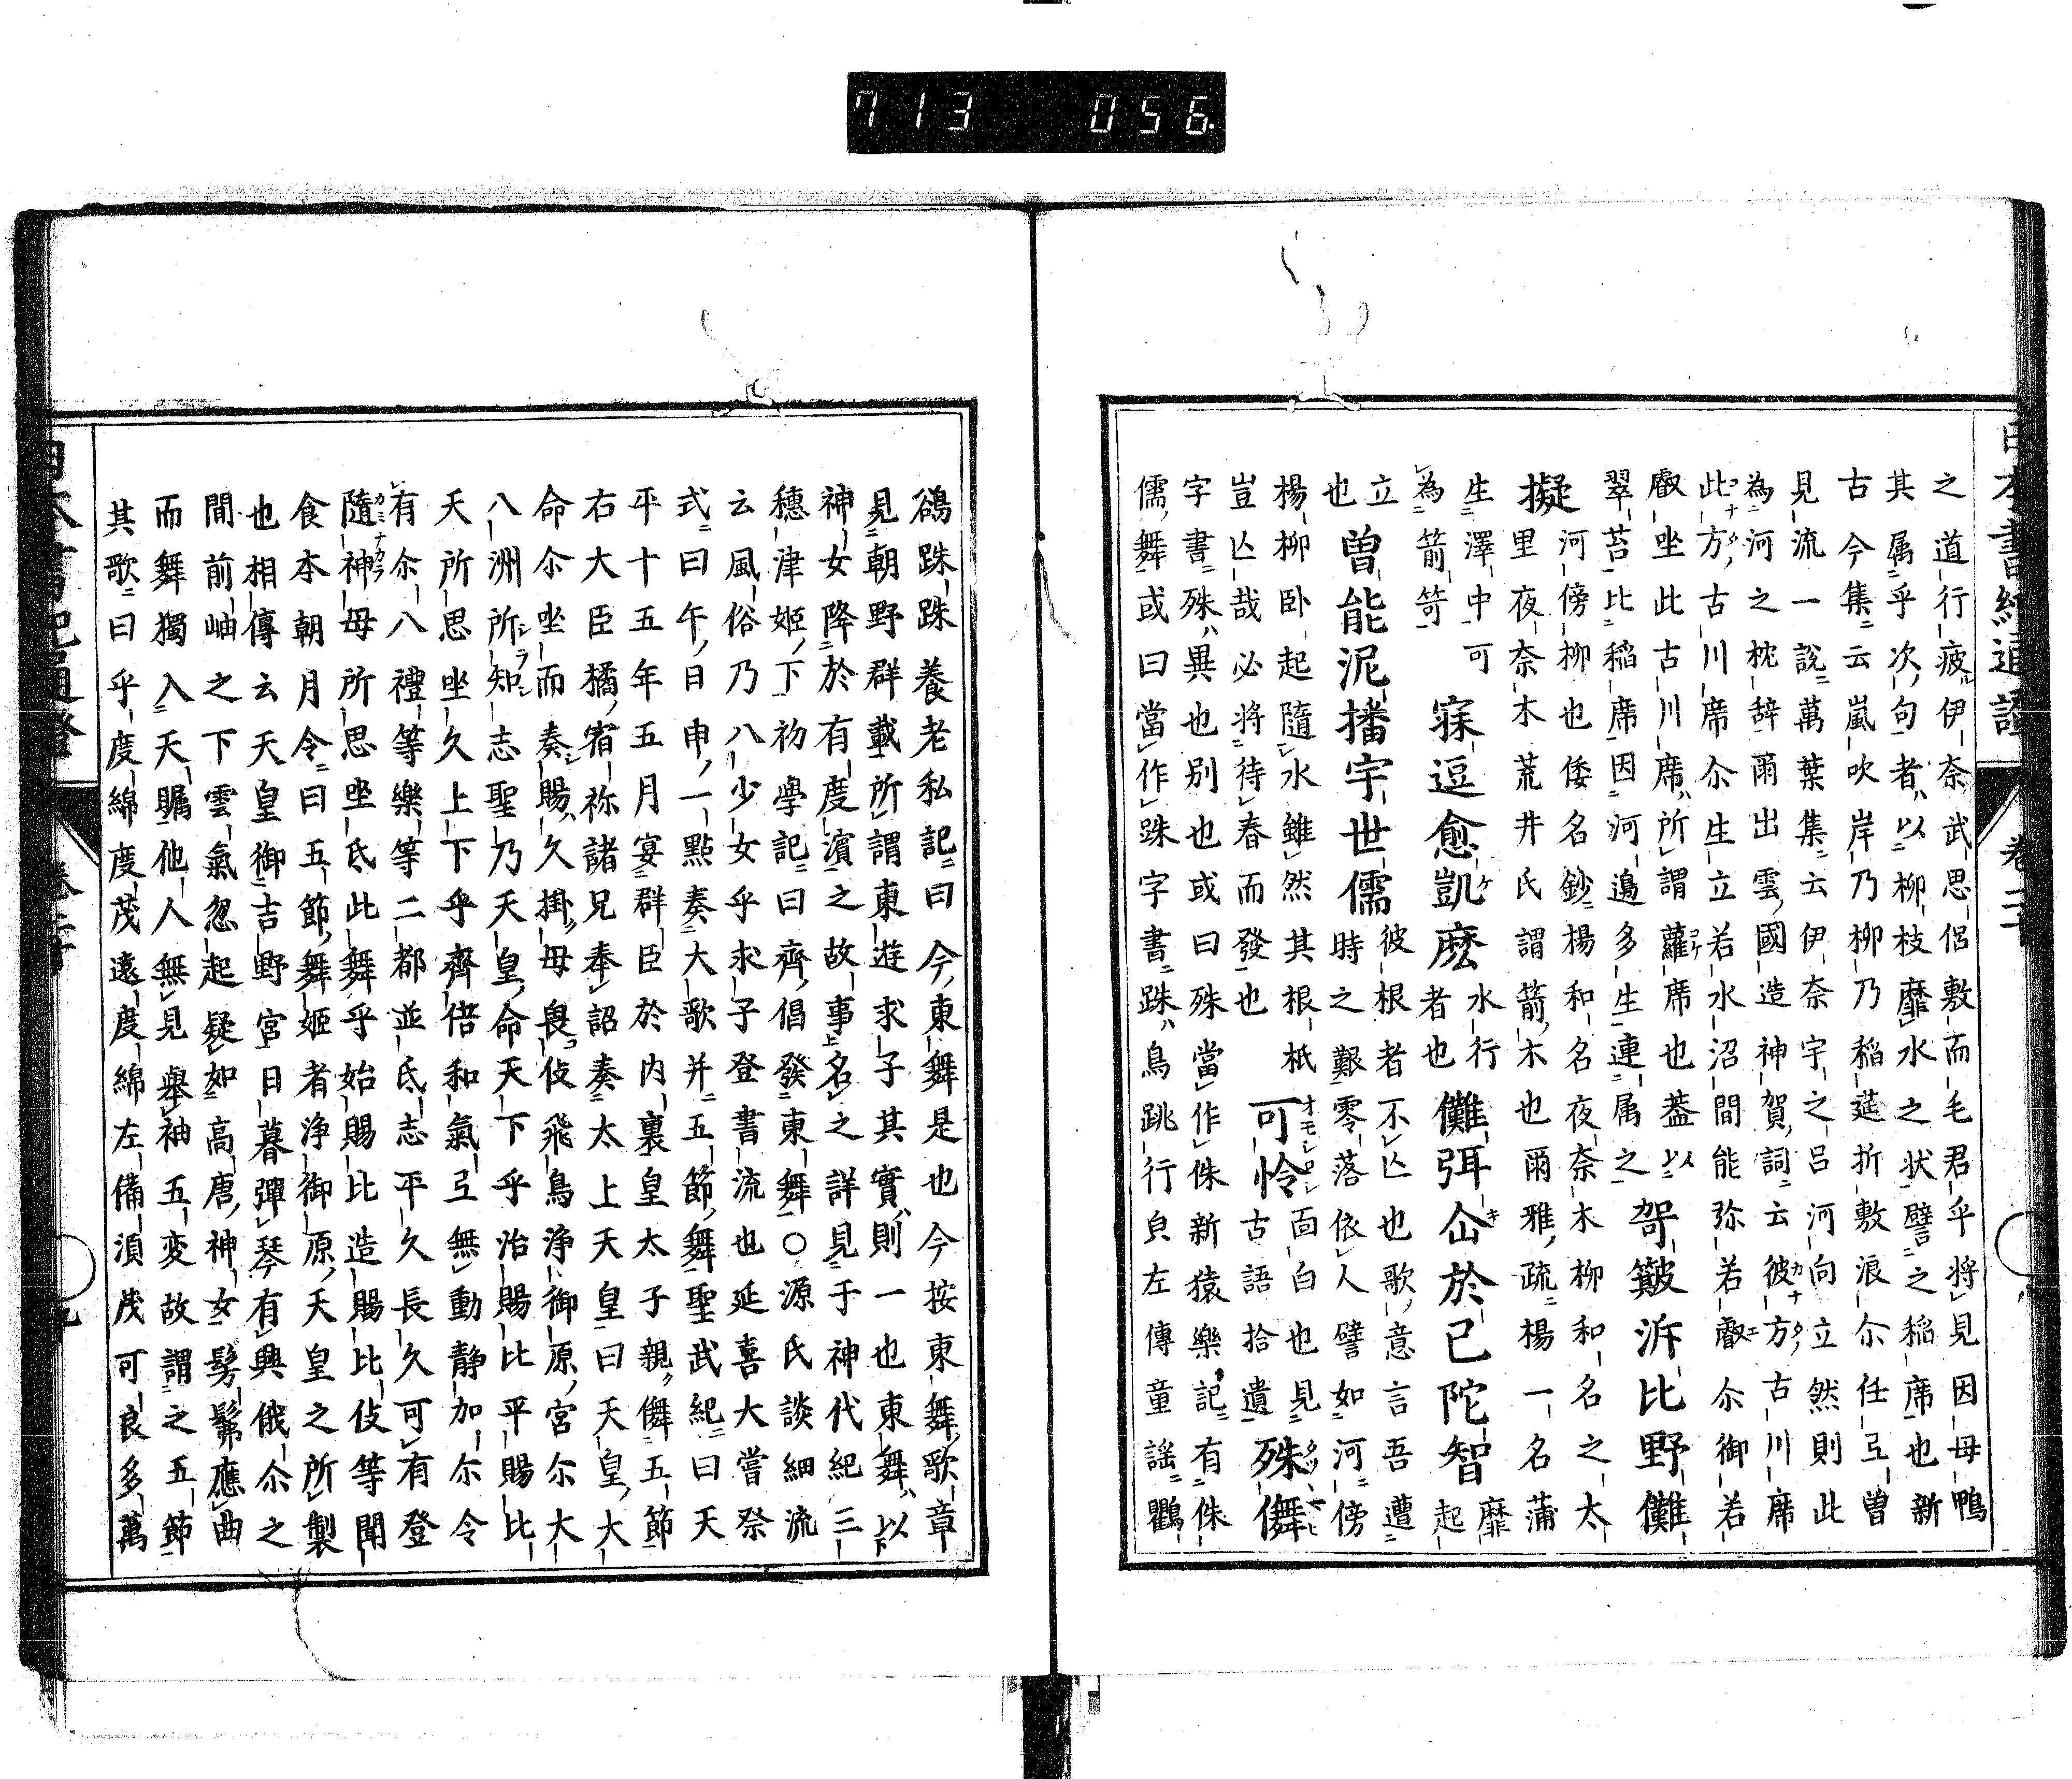 713 056
之道行疲伊奈武思侶敷而毛君乎將見因母鴨
其属乎次句者以柳枝靡水之状譬之稲席也新
古今集云嵐吹岸乃柳乃稲莚折敷浪尒任弖曽
見流一說萬葉集云伊奈宇之呂河向立然則此
為河之枕辞爾出雲國造神賀詞云彼方古川席
此方古川席尒生立若水沼間能弥若叡尒御若
叡坐此古川席所謂蘿席也蓋以
翠苔比稲席因河邉多生連属之
哿簸泝比野儺
擬
河傍柳也倭名鈔楊和名夜奈木柳和名之太
里夜奈木荒井氏謂箭木也爾雅疏楊一名蒲
生澤中可
為箭笴
寐逗愈凱麽
水行
者也
儺弭企於己陀智
靡
起
立
也
曽能泥播宇世儒
彼根者不亾也歌意言吾遭
時之艱零落依人譬如河傍
楊柳卧起隨水雖然其根柢
豈亾哉必將待春而發也
可怜
面白也見
古語拾遺
殊儛
字書殊異也别也或曰殊當作侏新猿樂記有侏
儒舞或曰當作跦字書跦鳥跳行皃左傳童謡鸜
鵒跦跦養老私記曰今東舞是也今按東舞歌章
見朝野群載所謂東遊求子其實則一也東舞以
神女降於有度濱之故事名之詳見于神代紀三
穗津姬下初學記曰齊倡發東舞〇源氏談細流
云風俗乃八少女乎求子登書流也延喜大嘗祭
式曰午日申一點奏大歌并五節舞聖武紀曰天
平十五年五月宴群臣於内裏皇太子親儛五節
右大臣橘宿祢諸兄奉詔奏太上天皇曰天皇大
命尒坐而奏賜久掛母畏伎飛鳥浄御原宮尒大
八洲所知志聖乃天皇命天下乎治賜比平賜比
天所思坐久上下乎齊倍和氣弖無動静加尒令
有尒八禮等樂等二都並氐志平久長久可有登
隨神母所思坐氐此舞乎始賜比造賜比伎等聞
食本朝月令曰五節舞姬者浄御原天皇之所製
也相傳云天皇御吉野宮日暮彈琴有興俄尒之
間前岫之下雲氣忽起疑如高唐神女髣髴應曲
而舞獨入天矚他人無見舉袖五変故謂之五節
其歌曰乎度綿度茂遠度綿左備湏茂可良多萬